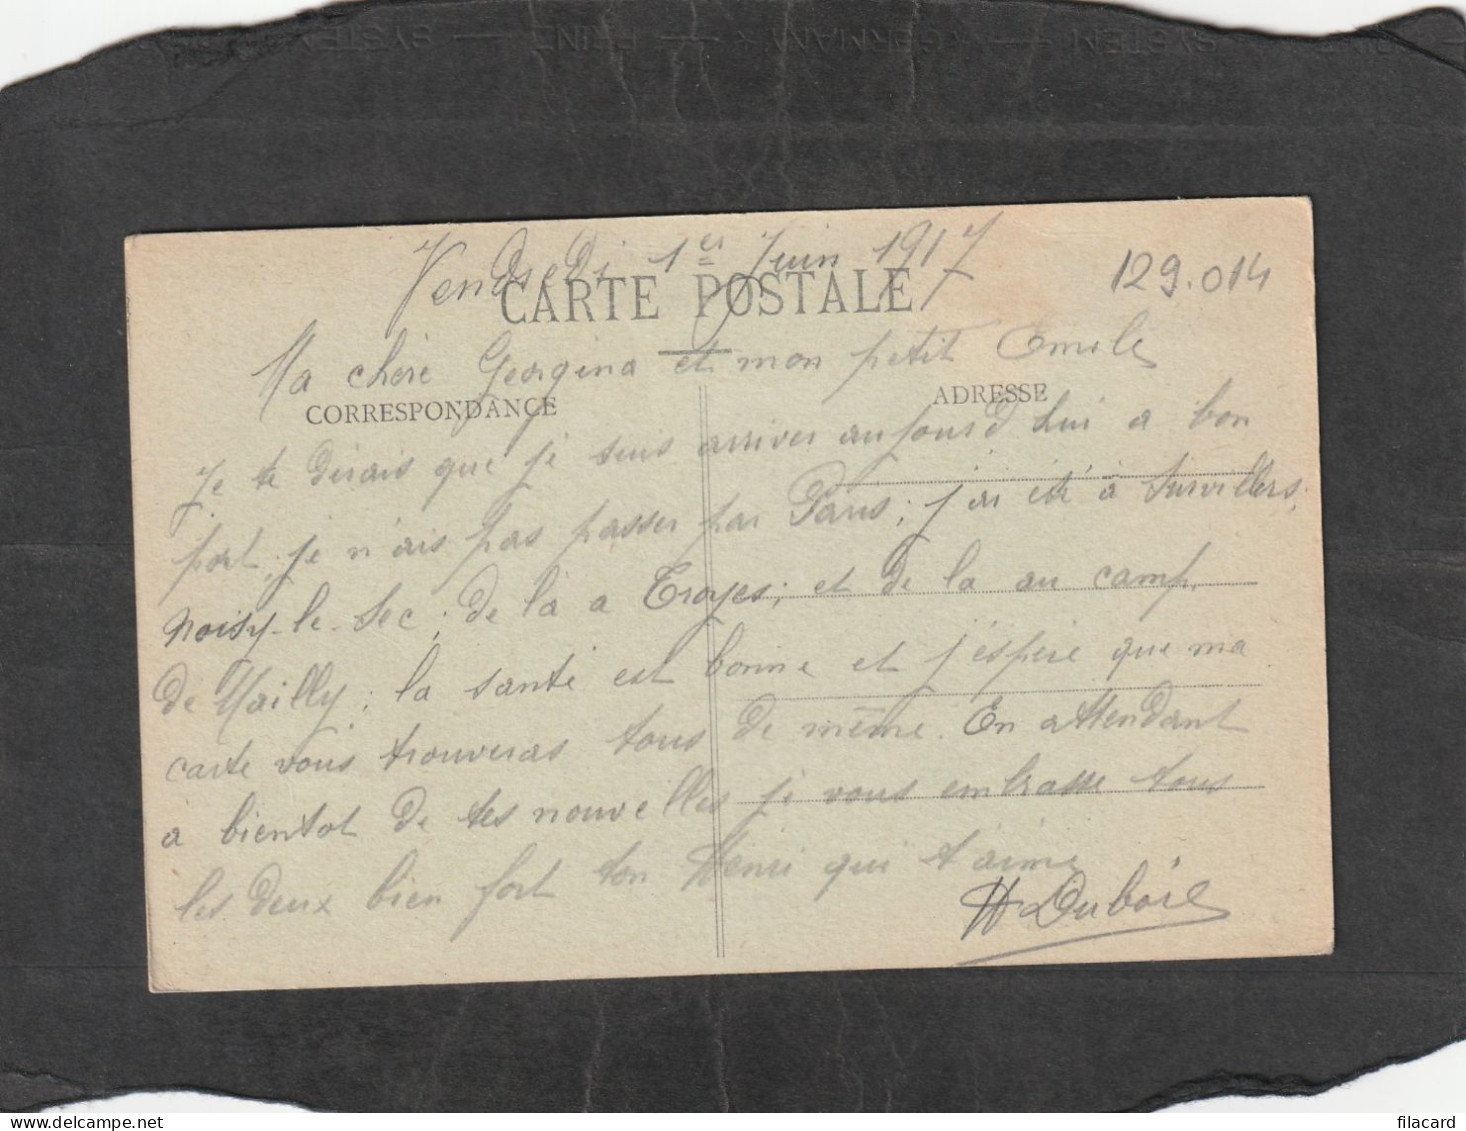 Vendredi 1er Juin 1917
129.014
CARTE POSTALE
Ma chère Georgina et mon petit Emile
CORRESPONDANCE
ADRESSE
Je te dirais que je suis arriver aujourd hui a bon
port, je n'ais pas passer par Paris; j'ai été à Survillers,
Noisy-le-Sec; de là a Troyes; et de la au camp
de Mailly; la santé est bonne et j'espère que ma
carte vous trouveras tous de même. En attendant
a bientot de tes nouvelles je vous embrasse tous
les deux bien fort ton Henri qui t'aime
H Dubois
filacard.com